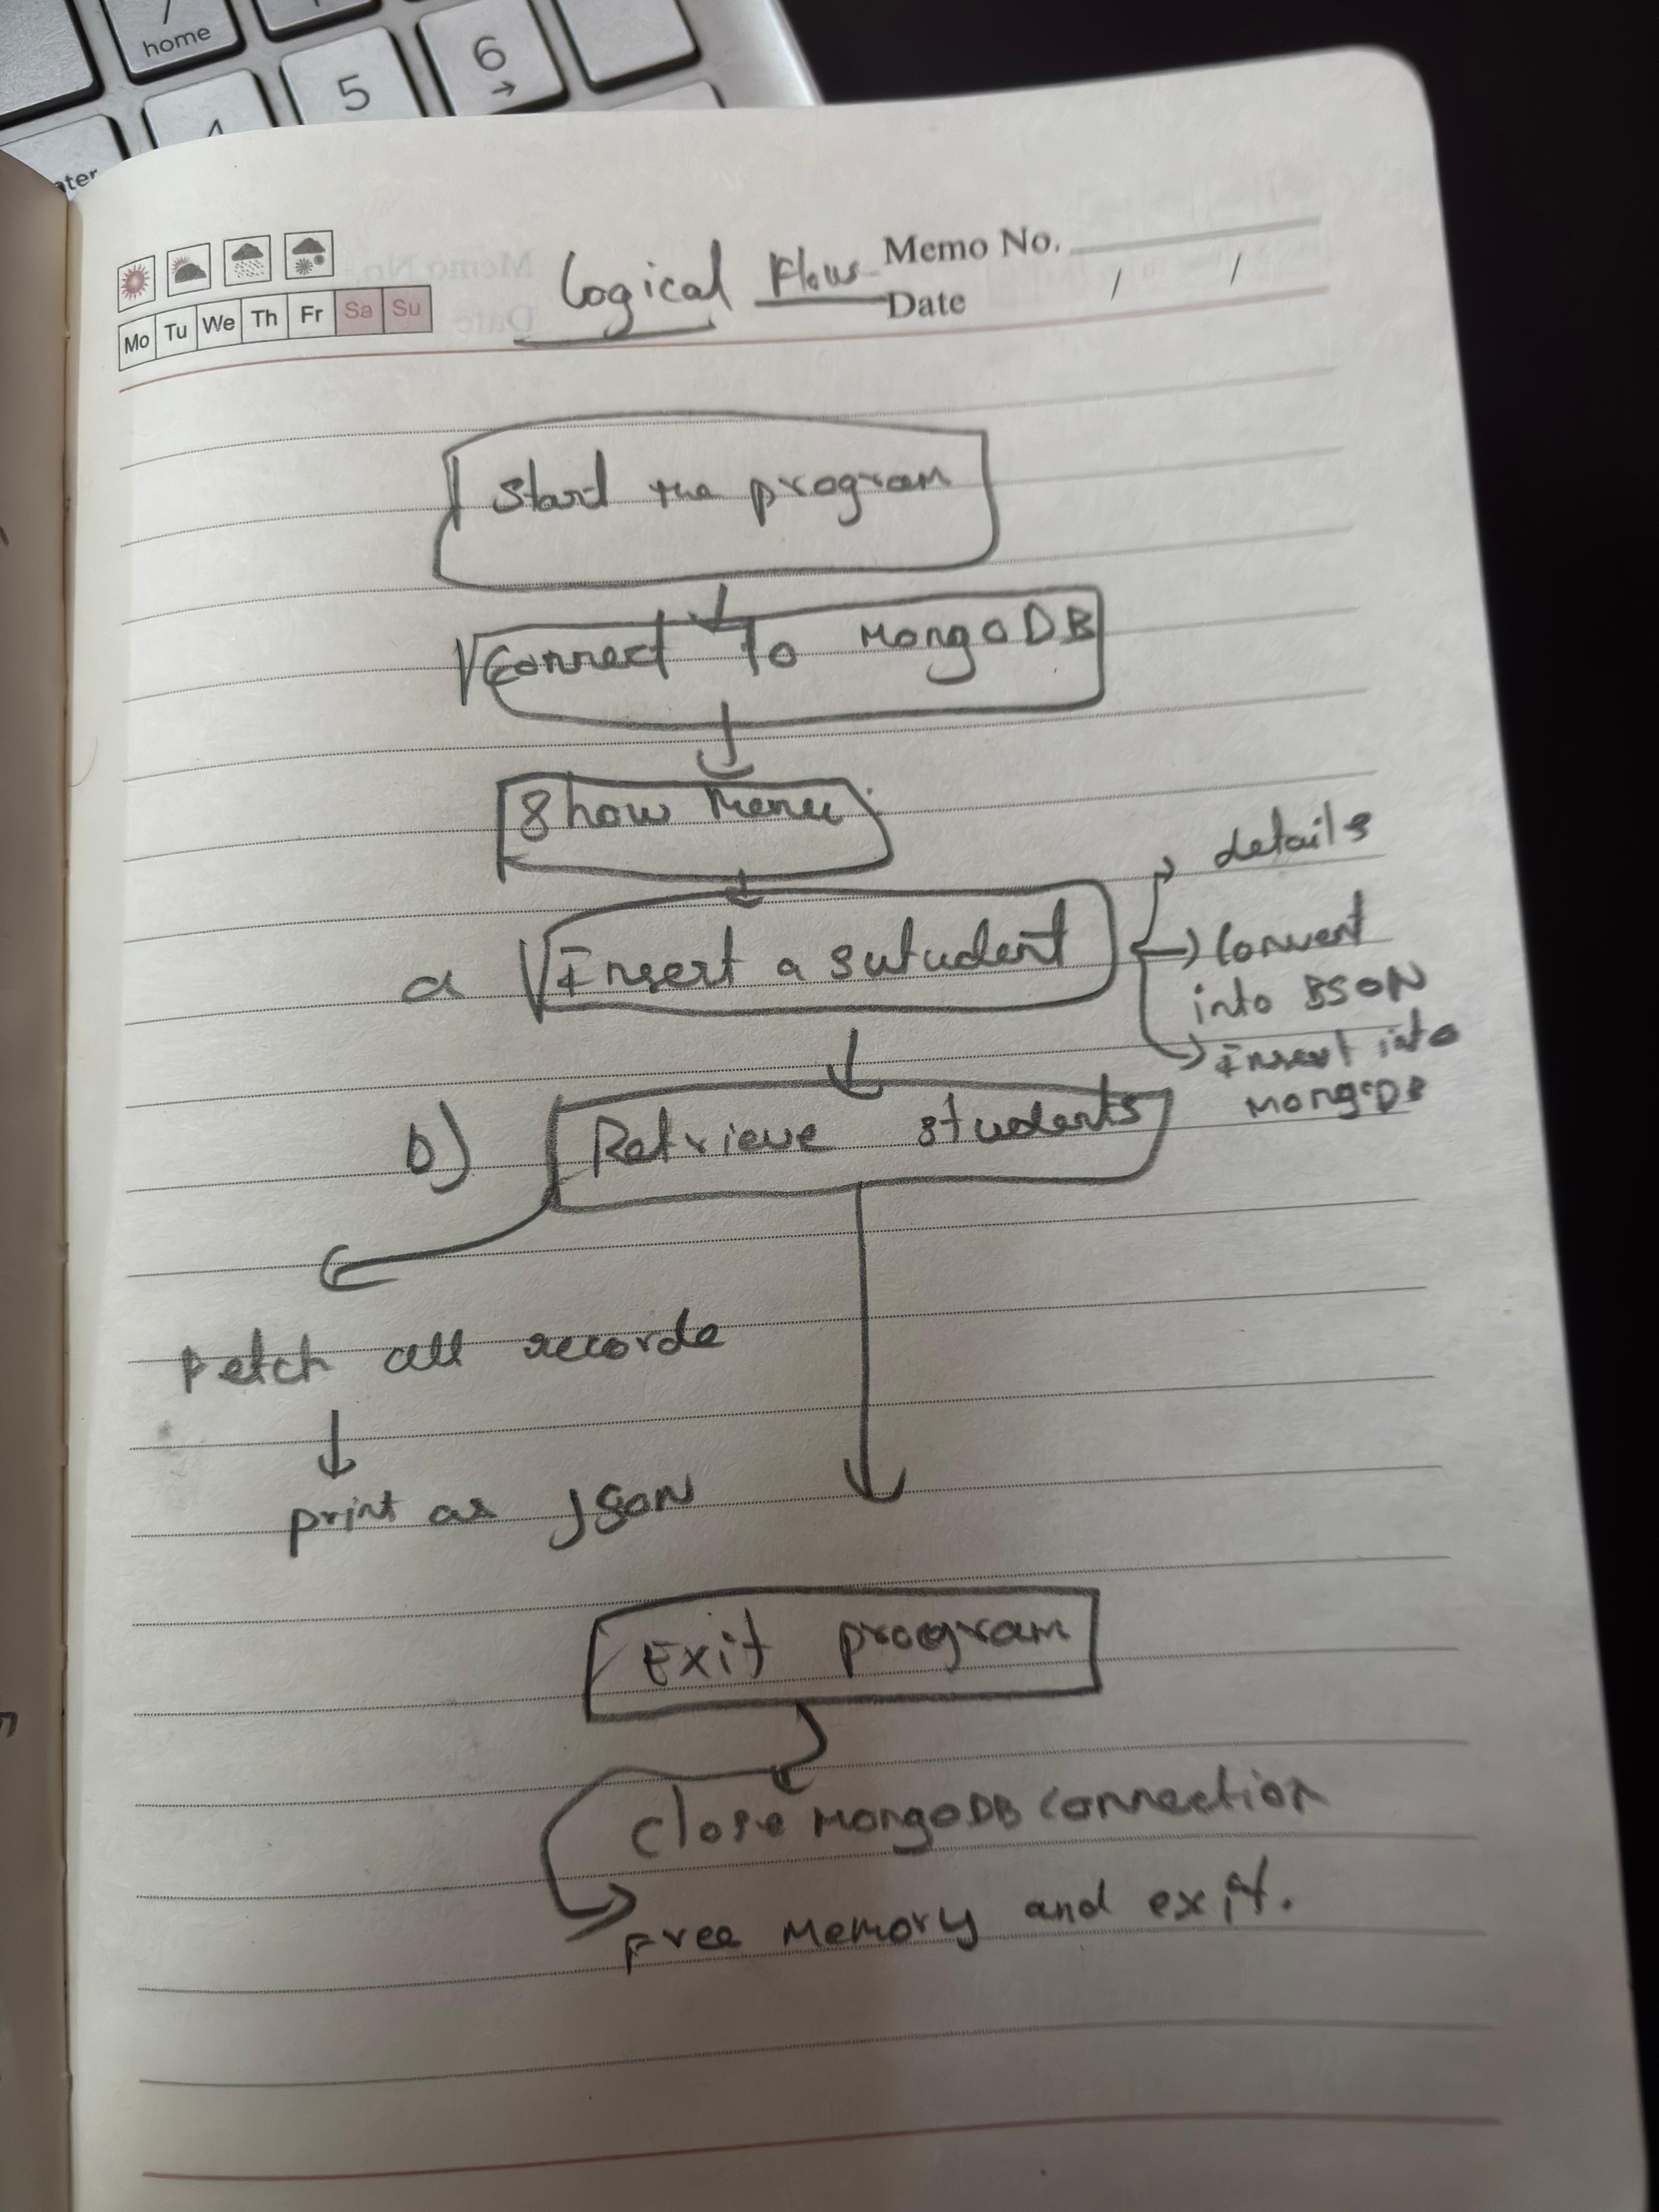 home
5
6
4
Mo Tu We Th Fr Sa Su
Logical Flow
Memo No.
Date / /
Start the program
Connect To MongoDB
Show Menu
details
a Insert a sutudent
Convert
into BSON
Insert into
MongoDB
b) Retrieve students
Fetch all records
print as JSON
Exit program
Close MongoDB connection
Free Memory and exit.